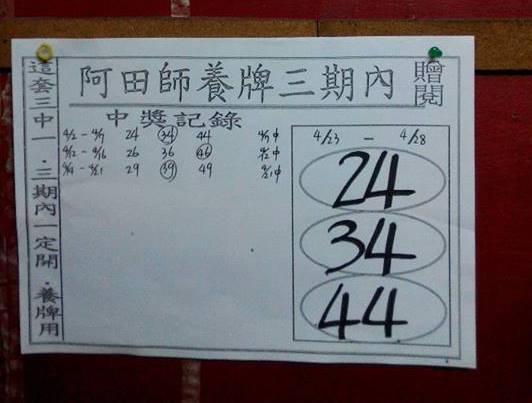 阿田師養牌三期內
贈閱
這套三中一．三期內一定開．養牌用
中獎記錄
4/2 - 4/7 24 34 44 4/7中
4/12 - 4/16 26 36 46 4/12中
29 39 49 4/21中
4/23 - 4/28
24
34
44